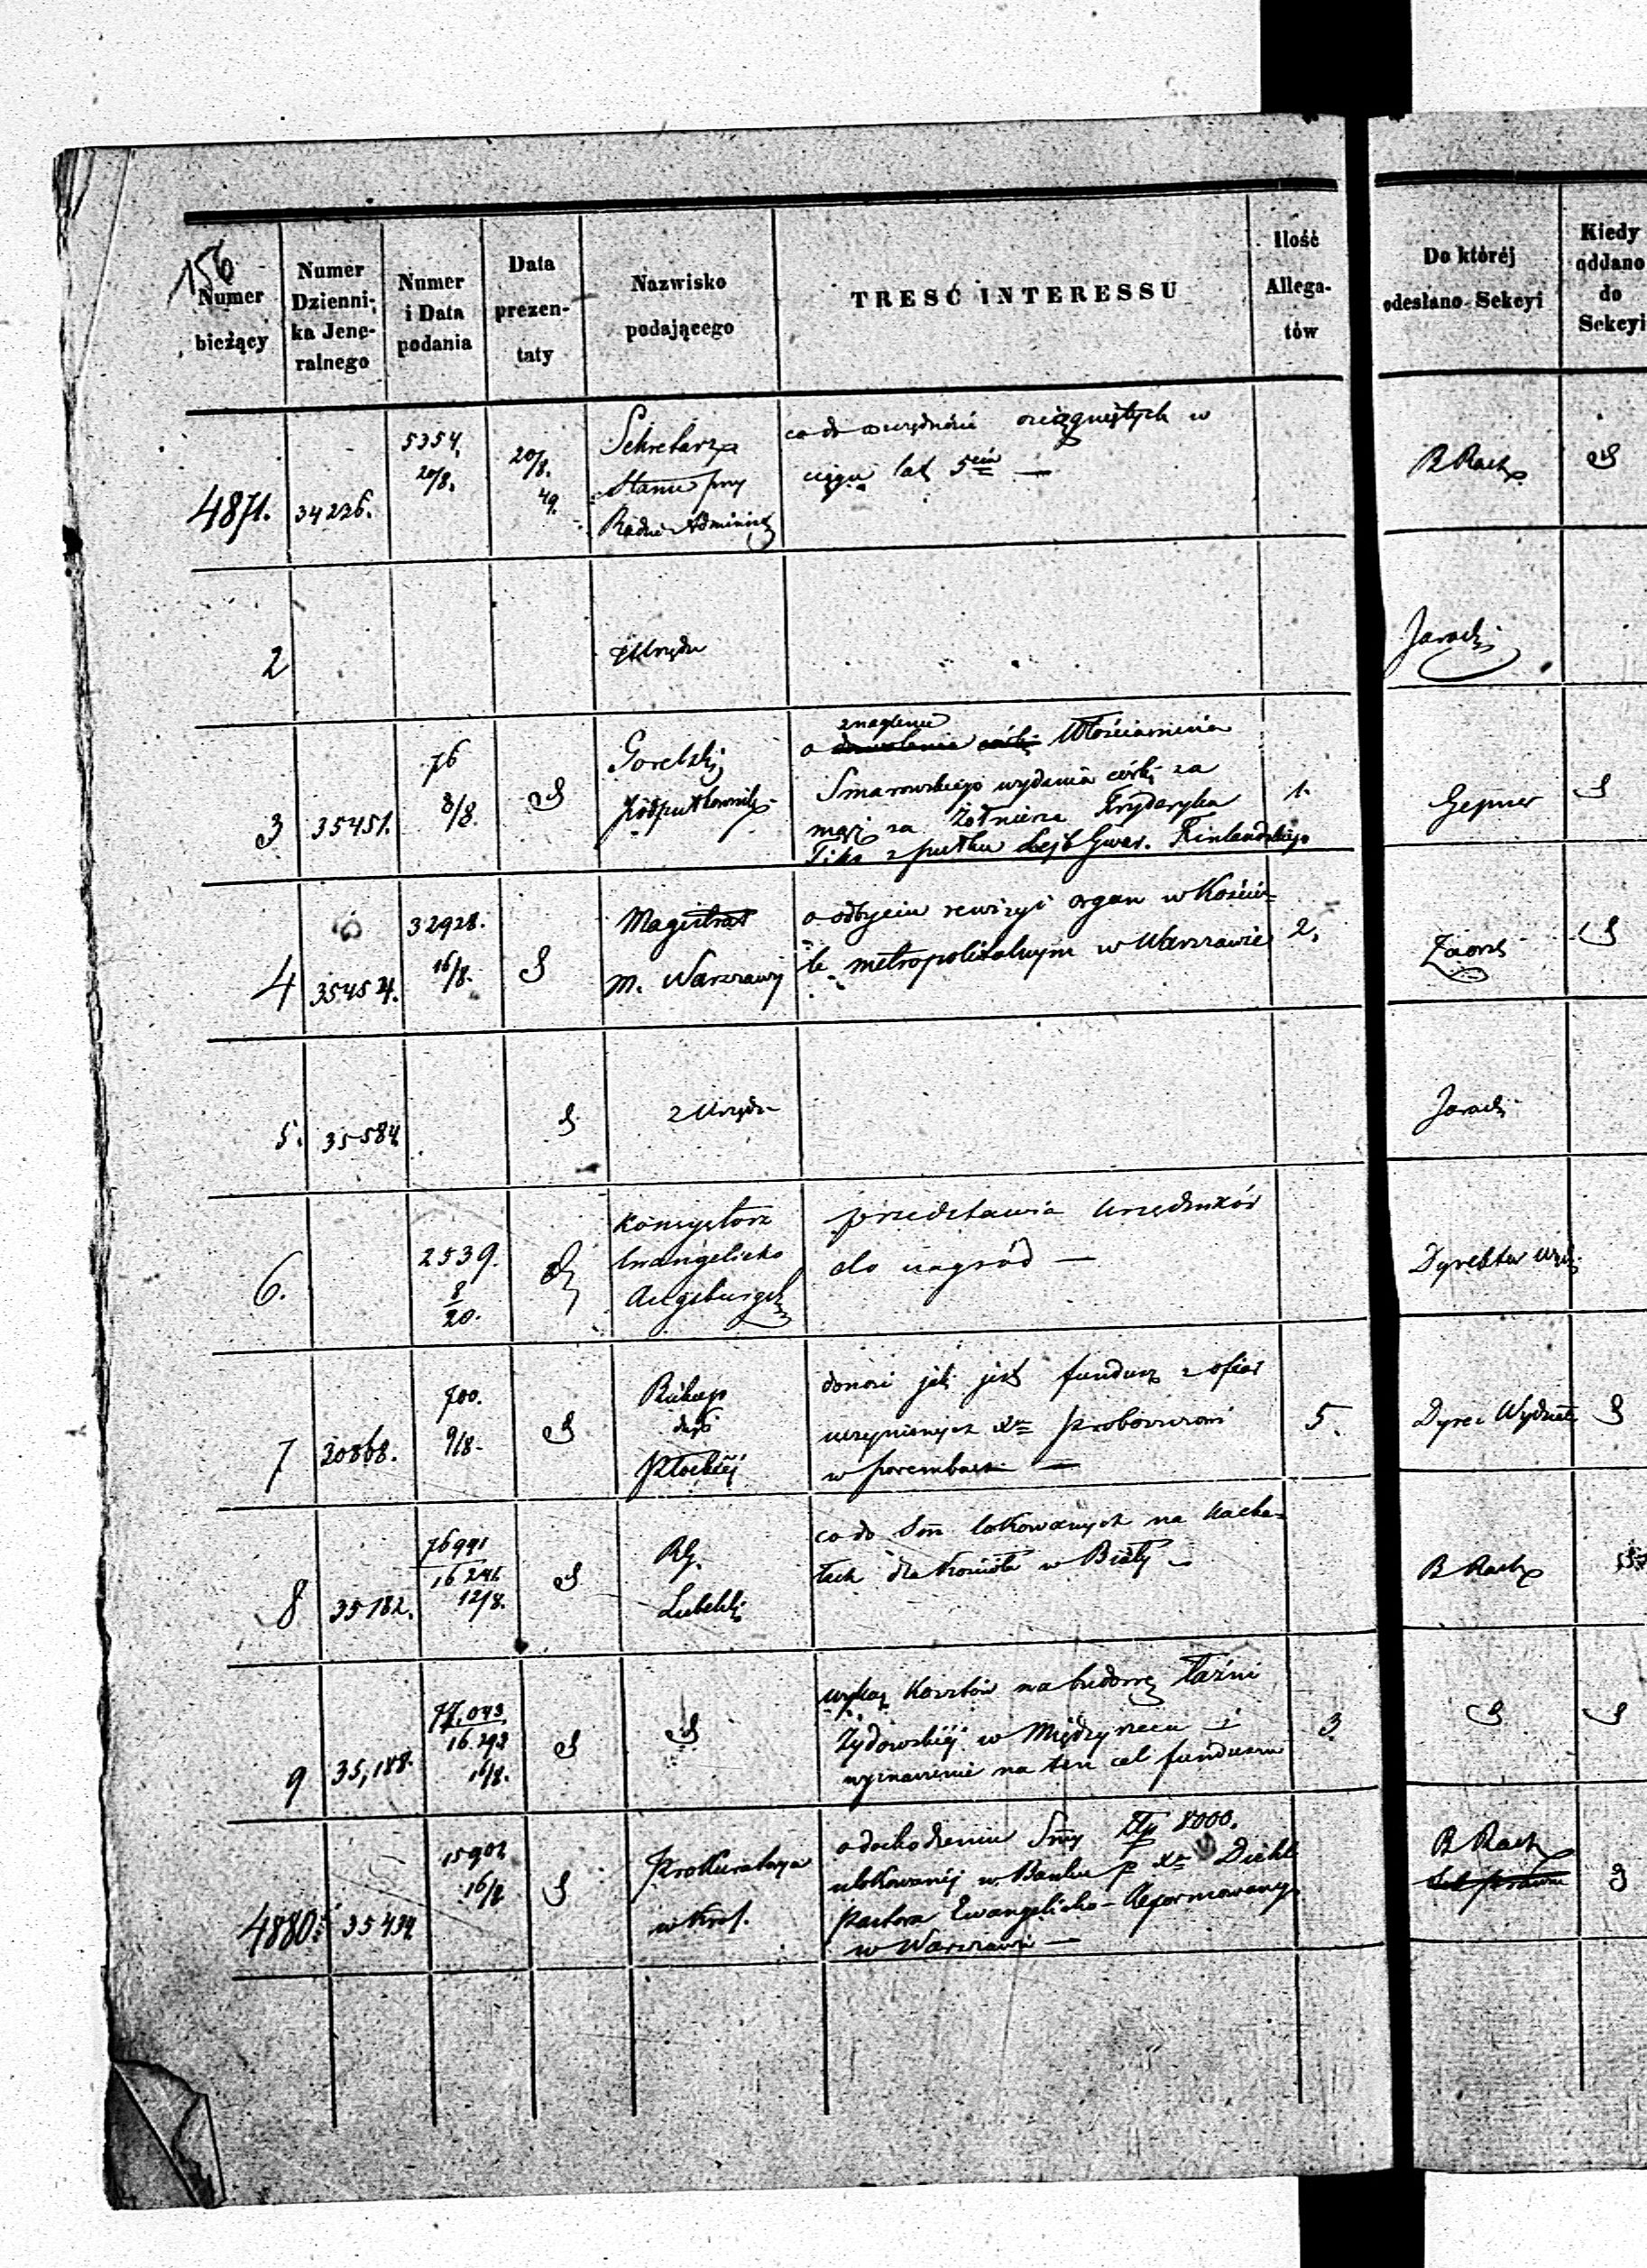 156
Numer
bieżący
Numer
Dzienni-
ka Jene-
ralnego
Numer
i Data
podania
Data
prezen-
taty
Nazwisko
podającego
TREŚĆ INTERESSU
Ilość
Allega-
tów
Do któréj
odesłano Sekcyi
Kiedy
oddano
do
Sekcyi
4871.
34226.
5354.
20/8.
20/8.
49.
Sekretarz
Stanu przy
Radzie Administ
co do oszczędności osiągniętych w
ciągu lat 5ciu —
B Rach
2
z Urzędu
3
35451.
76
8/8.
Gorelski
Podpułkownik
znaglenie
o Włościanina
Smarowskiego wydania córki za
mąż za Żołnierza Fryderyka
z pułku Lejb Gwar. Finlandzkiego
1.
Gepner
4
35454.
32928.
16/8.
Magistrat
m. Warszawy
o odbyciu rewizyi organ w Kościo-
le metropolitalnym w Warszawie
2.
5.
35584
z Urzędu
6.
2539.
8
20.
Konsystorz
Ewangelicko
Augsburgsk
przedstawia urzędników
do nagród —
Dyrektor Wydz
7
30868.
700.
9/8.
Biskup
dyec
Płockiej
donosi jaki jest fundusz z ofiar
uczynionych Xu Proboszczowi
w Porembach —
5.
Dyre: Wydział
8
35182.
76991
16241
12/8.
RG.
Lubelski
co do Sm lokowanych na Kacha-
łach dla Kościoła w Biały —
B Rach
9
35,188.
77.043.
16.293
16/8.
wykaz Kosztów na budowę łaźni
Żydowskiéj w Międzyrzecu i
wyznaczenie na ten cel funduszu
3
4880.
35434
15902
16/8
Prokuratorya
w Król.
o dochodzeniu Smy Złp 8000.
ulokowanéj w Banku p Xa Diehl
Pastora Ewangelicko-Reformowanego
w Warszawie —
B Rach